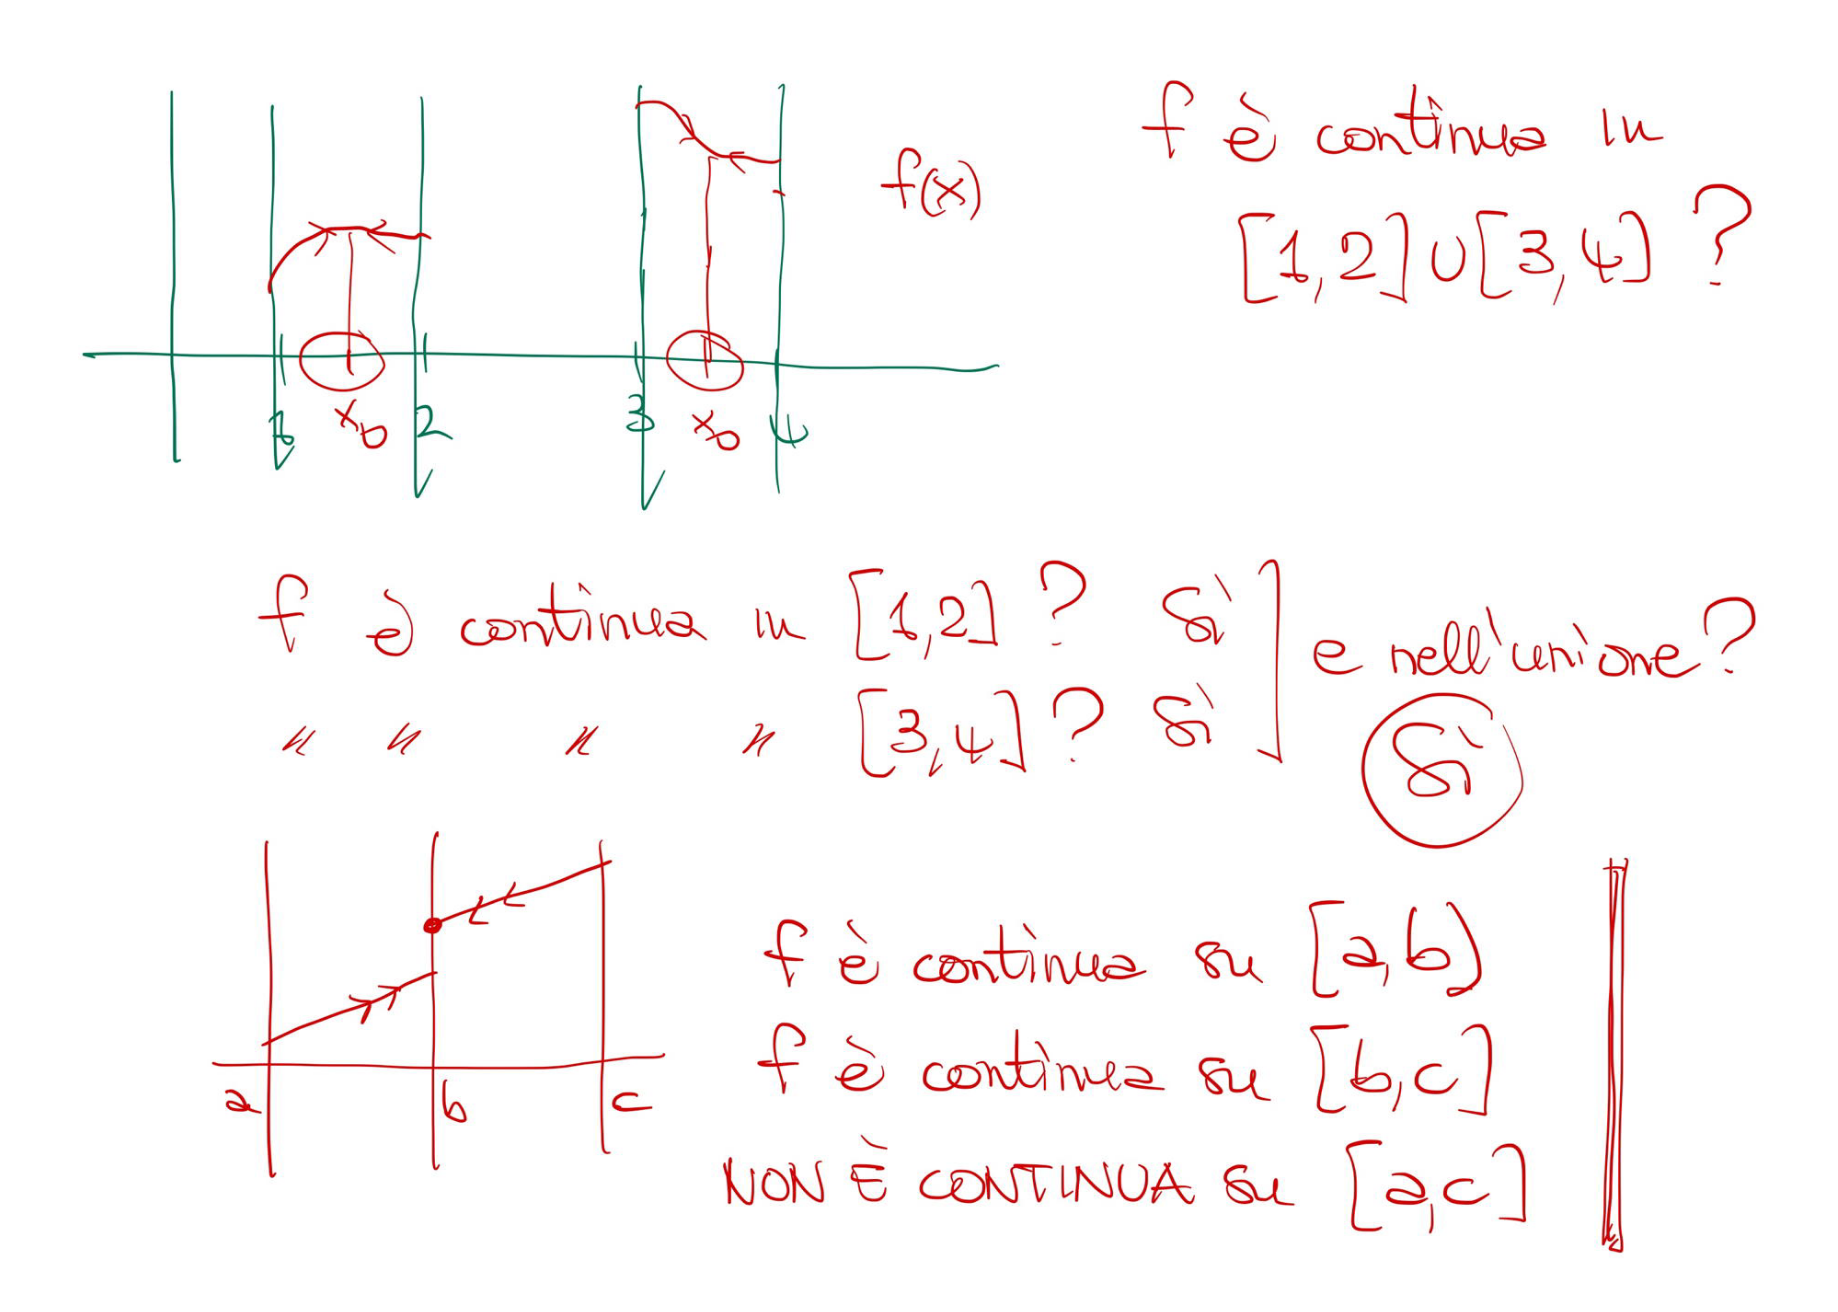 f è continua in
[1,2]∪[3,4] ?
f(x)
1 x₀ 2 3 x₀ 4
f è continua in [1,2] ? Sì
" " " " [3,4] ? Sì
e nell'unione?
Sì
a b c
f è continua su [a,b)
f è continua su [b,c]
NON È CONTINUA su [a,c]